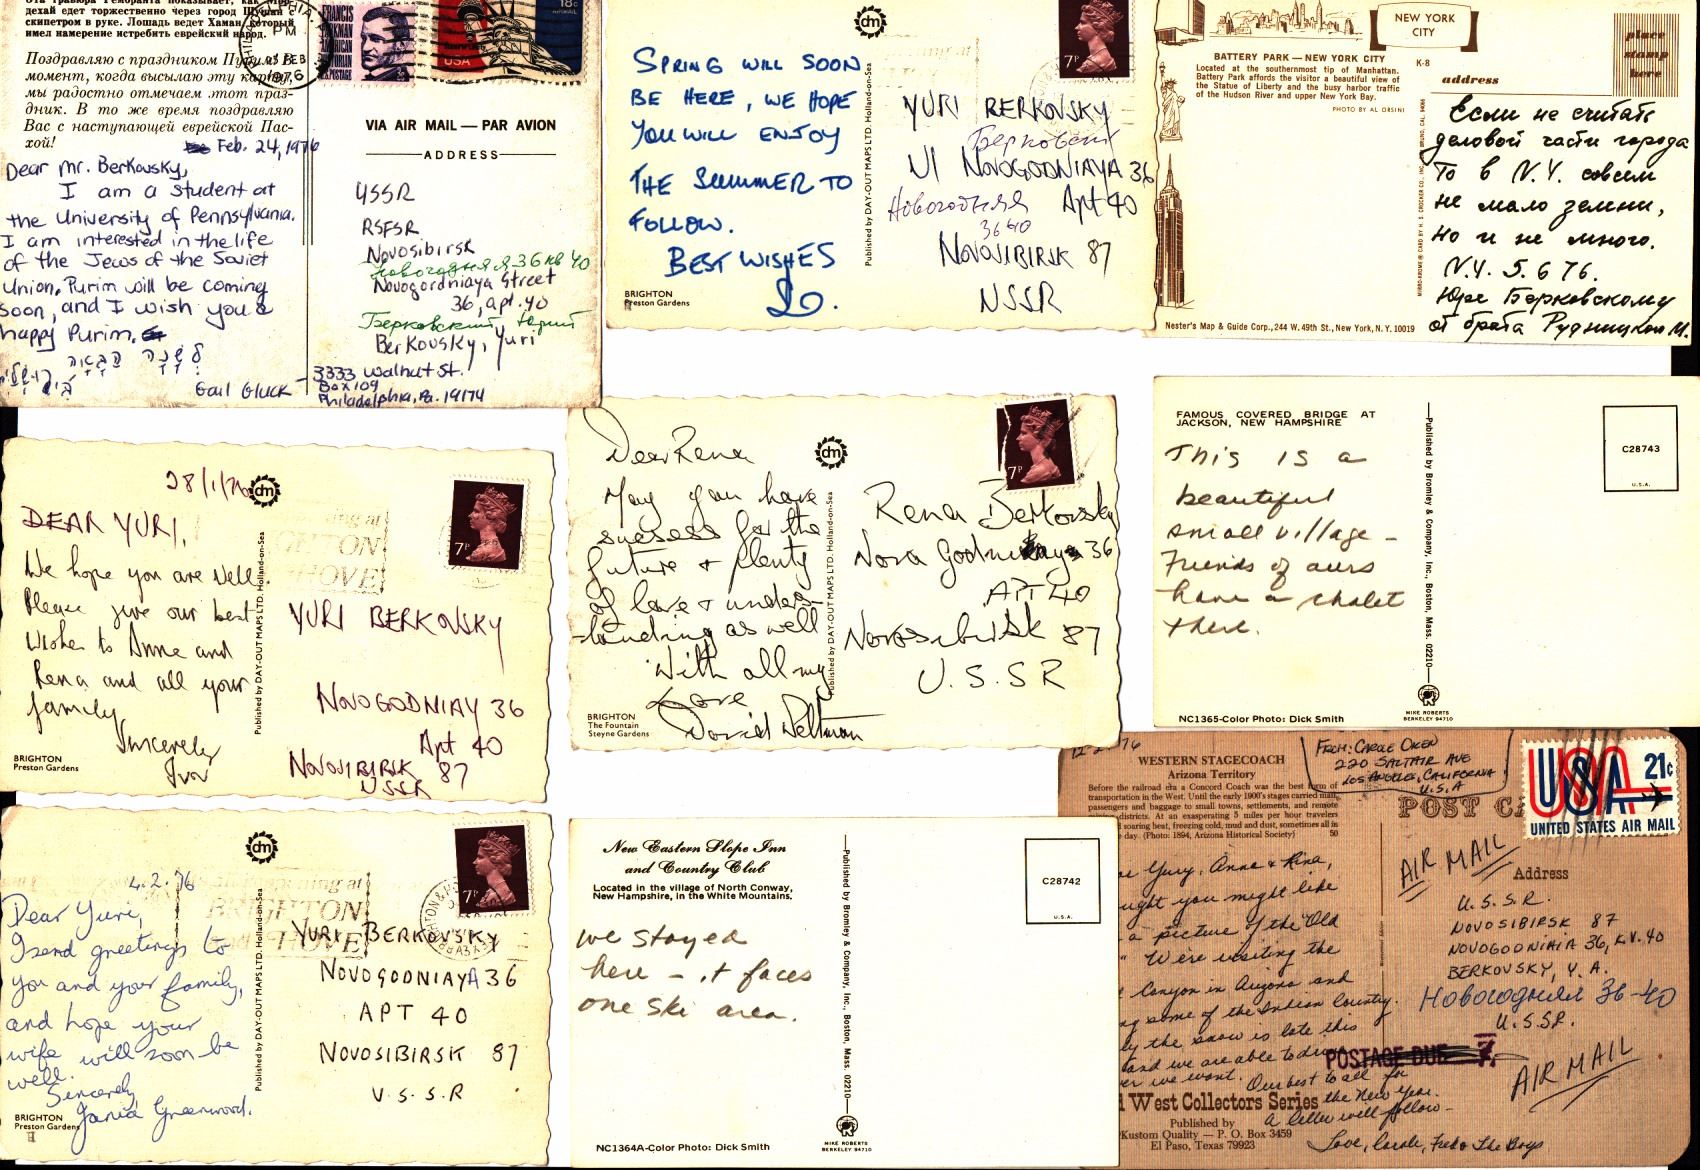 Эта гравюра Рембранта показывает, как Мор-
дехай едет торжественно через город Шушан с
скипетром в руке. Лошадь ведет Хаман, который
имел намерение истребить еврейский народ.
Поздравляю с праздником Пурим! В
момент, когда высылаю эту карту,
мы радостно отмечаем этот праз-
дник. В то же время поздравляю
Вас с наступающей еврейской Пас-
хой!
Feb. 24, 1976
Dear Mr. Berkovsky,
I am a student at
the University of Pennsylvania.
I am interested in the life
of the Jews of the Soviet
Union. Purim will be coming
soon, and I wish you a
happy Purim.
לשנה הבאה
Gail Gluck
3333 Walnut St.
Box 109
Philadelphia, Pa. 19174
PM
FRANCIS
PARKMAN
AMERICAN
HISTORIAN
US POSTAGE
USA
18c
VIA AIR MAIL — PAR AVION
ADDRESS
USSR
RSFSR
Novosibirsk
Новогодняя 36 кв 40
Novogordniaya Street
36, apt. 40
Берковский Юрий
Berkovsky, Yuri
dm
SPRING WILL SOON
BE HERE, WE HOPE
YOU WILL ENJOY
THE SUMMER TO
FOLLOW.
BEST WISHES
BRIGHTON
Preston Gardens
Published by DAY-OUT MAPS LTD. Holland-on-Sea
7P
YURI BERKOVSKY
Берковский
Ul NOVOGODNIAYA 36
Новогодняя Apt 40
36 40
NOVOSIBIRSK 87
USSR
NEW YORK
CITY
place
stamp
here
BATTERY PARK — NEW YORK CITY
Located at the southernmost tip of Manhattan.
Battery Park affords the visitor a beautiful view of
the Statue of Liberty and the busy harbor traffic
of the Hudson River and upper New York Bay.
PHOTO BY AL ORSINI
K-8
address
Если не считать
деловой части города
То в N.Y. совсем
не мало зелени,
но и не много.
N.Y. 5.6 76.
Юре Берковскому
от брата Рудницкого М.
Nester's Map & Guide Corp., 244 W. 49th St., New York, N.Y. 10019
28/1/76
dm
DEAR YURI,
We hope you are well.
Please give our best
wishes to Anne and
Rena and all your
family
Sincerely
Ivor
BRIGHTON
Preston Gardens
Published by DAY-OUT MAPS LTD. Holland-on-Sea
7P
YURI BERKOVSKY
NOVOGODNIAY 36
Apt 40
NOVOSIBIRSK 87
USSR
Dear Rena
May you have
success for the
future & plenty
of love & under-
standing as well
With all my
Love
David Veltman
BRIGHTON
The Fountain
Steyne Gardens
dm
Published by DAY-OUT MAPS LTD. Holland-on-Sea
7P
Rena Berkovsky
Nova Godniaya 36
APT 40
Novosibirsk 87
U.S.S.R
FAMOUS COVERED BRIDGE AT
JACKSON, NEW HAMPSHIRE
This is a
beautiful
small village -
Friends of ours
have a chalet
there.
NC1365-Color Photo: Dick Smith
Published by Bromley & Company, Inc., Boston, Mass. 02210
MIKE ROBERTS
BERKELEY 94710
C28743
U.S.A.
4.2.76
dm
Dear Yuri,
I send greetings to
you and your family,
and hope your
wife will soon be
well.
Sincerely,
Greenwood.
BRIGHTON
Preston Gardens
Published by DAY-OUT MAPS LTD. Holland-on-Sea
BRIGHTON
HOVE
7P
YURI BERKOVSKY
NOVOGODNIAYA 36
APT 40
NOVOSIBIRSK 87
U.S.S.R
New Eastern Slope Inn
and Country Club
Located in the village of North Conway,
New Hampshire, in the White Mountains.
we stayed
here - it faces
one ski area.
NC1364A-Color Photo: Dick Smith
Published by Bromley & Company, Inc., Boston, Mass. 02210
MIKE ROBERTS
BERKELEY 94710
C28742
U.S.A.
WESTERN STAGECOACH
Arizona Territory
Before the railroad era a Concord Coach was the best form of
transportation in the West. Until the early 1900's stages carried mail,
passengers and baggage to small towns, settlements, and remote
districts. At an exasperating 5 miles per hour travelers
soaring heat, freezing cold, mud and dust, sometimes all in
day. (Photo: 1894, Arizona Historical Society) 50
FROM: CAROLE OKEN
220 SALTAIR AVE
LOS ANGELES, CALIFORNIA
U.S.A
POST C
USA 21c
UNITED STATES AIR MAIL
Yury, Anne & Rina,
ught you might like
a picture of the "Old
" We're visiting the
Canyon in Arizona and
some of the Indian Country.
the snow is late this
and we are able to
we want. Our best to all for
the New Year.
A letter will follow -
Love, Carole, & The Boys
d West Collectors Series
Published by
Kustom Quality — P. O. Box 3459
El Paso, Texas 79923
AIR MAIL
Address
U.S.S.R.
NOVOSIBIRSK 87
NOVOGODNIAIA 36, K.V. 40
BERKOVSKY, Y. A.
Новогодняя 36-40
U.S.S.R.
POSTAGE DUE
AIR MAIL